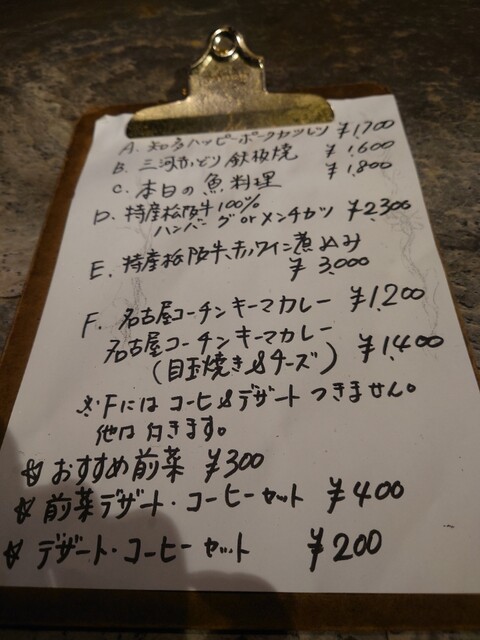 A. 知多ハッピーポークカツレツ ¥1,700
B. 三河赤どり 鉄板焼 ¥1,600
C. 本日の魚料理 ¥1,800
D. 特産松阪牛100%
ハンバーグorメンチカツ ¥2300
E. 特産松阪牛、赤ワイン煮込み
¥3,000
F. 名古屋コーチンキーマカレー ¥1,200
名古屋コーチンキーマカレー
(目玉焼き&チーズ) ¥1,400
※Fにはコーヒ&デザートつきません。
他は付きます。
☆おすすめ前菜 ¥300
☆前菜デザート・コーヒーセット ¥400
☆デザート・コーヒーセット ¥200